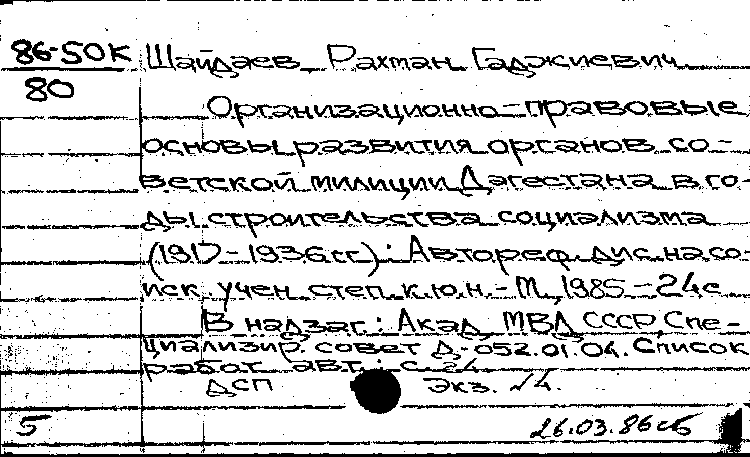 86-50К Шайдаев Рахман Гаджиевич
80
Организационно-правовые
основы развития органов со-
ветской милиции Дагестана в го-
ды строительства социализма
(1917-1936 гг): Автореф. дис. на со-
иск. учен. степ. к.ю.н. - М., 1985. - 24 с
В надзаг.: Акад. МВД СССР, Спе-
циализир. совет Д-052.01.04. Список
работ авт.: с. 24
ДСП Экз. №4.
5 26.03.86